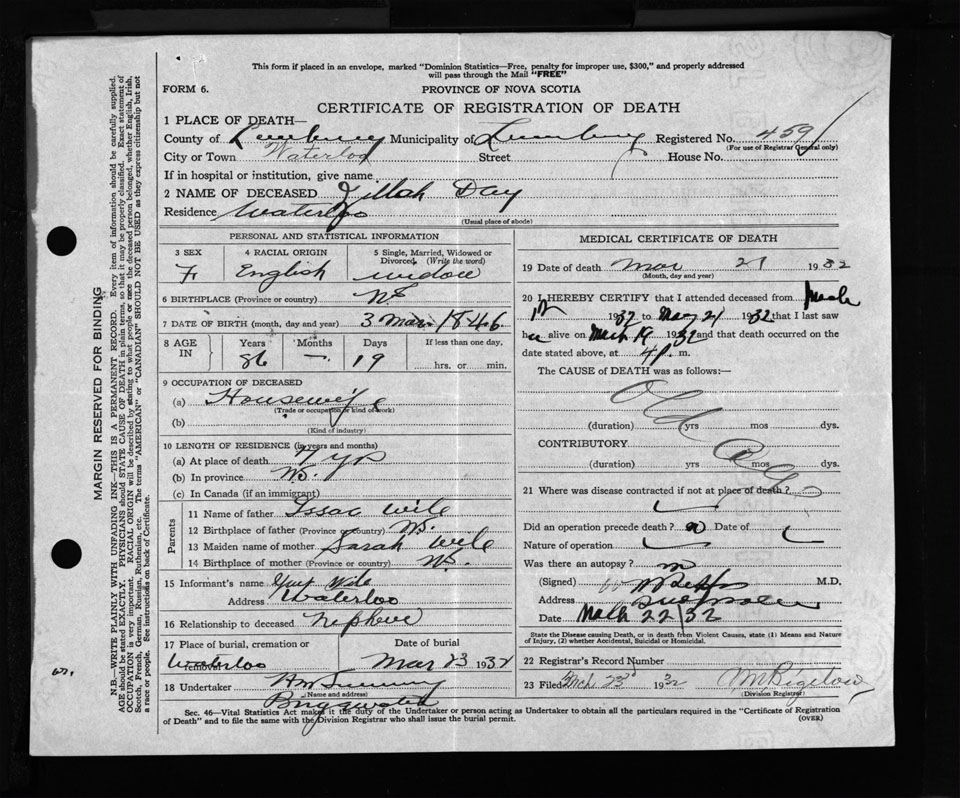 This form if placed in an envelope, marked "Dominion Statistics—Free, penalty for improper use, $300," and properly addressed
will pass through the Mail "FREE"
FORM 6. PROVINCE OF NOVA SCOTIA
CERTIFICATE OF REGISTRATION OF DEATH
1 PLACE OF DEATH—
County of Lunenburg Municipality of Lunenburg Registered No. 459
(For use of Registrar General only)
City or Town Waterloo Street House No.
If in hospital or institution, give name
2 NAME OF DECEASED Zillah Day
Residence Waterloo
(Usual place of abode)
PERSONAL AND STATISTICAL INFORMATION
3 SEX 4 RACIAL ORIGIN 5 Single, Married, Widowed or Divorced (Write the word)
F English widow
6 BIRTHPLACE (Province or country) NS
7 DATE OF BIRTH (month, day and year) 3 Mar. 1846
8 AGE IN Years Months Days If less than one day,
86 — 19 hrs. or min.
9 OCCUPATION OF DECEASED
(a) Housewife
(Trade or occupation or kind of work)
(b)
(Kind of industry)
10 LENGTH OF RESIDENCE (in years and months)
(a) At place of death yrs
(b) In province NS.
(c) In Canada (if an immigrant)
Parents
11 Name of father Issac Wile
12 Birthplace of father (Province or country) NS.
13 Maiden name of mother Sarah Wile
14 Birthplace of mother (Province or country) NS.
15 Informant's name Wile
Address Waterloo
16 Relationship to deceased Nephew
17 Place of burial, cremation or removal Date of burial
Waterloo Mar 23 1932
18 Undertaker
(Name and address)
Bridgewater
MEDICAL CERTIFICATE OF DEATH
19 Date of death Mar 21 1932
(Month, day and year)
20 I HEREBY CERTIFY that I attended deceased from March
1932 to Mar 21 1932 that I last saw
her alive on March 19 1932 and that death occurred on
date stated above, at 4 P. m.
The CAUSE of DEATH was as follows:
Old
(duration) yrs mos dys.
CONTRIBUTORY Age
(duration) yrs mos dys.
21 Where was disease contracted if not at place of death?
Did an operation precede death? no Date of
Nature of operation
Was there an autopsy?
(Signed) M.D.
Address
Date March 22/32
State the Disease causing Death, or in death from Violent Causes, state (1) Means and Nature
of Injury, (2) whether Accidental, Suicidal or Homicidal.
22 Registrar's Record Number
23 Filed Mch 23rd 1932 Bigelow
(Division Registrar)
Sec. 46—Vital Statistics Act makes it the duty of the Undertaker or person acting as Undertaker to obtain all the particulars required in the "Certificate of Registration
of Death" and to file the same with the Division Registrar who shall issue the burial permit. (OVER)
MARGIN RESERVED FOR BINDING
N.B.—WRITE PLAINLY WITH UNFADING INK—THIS IS A PERMANENT RECORD. Every item of information should be carefully supplied.
AGE should be stated EXACTLY. PHYSICIANS should STATE CAUSE OF DEATH in plain terms, so that it may be properly classified. Exact statement of
OCCUPATION is very important. RACIAL ORIGIN will be described by stating to what people or race the deceased person belonged, whether English, Irish,
Scotch, French, German, Russian, Ruthenian, etc. The terms "AMERICAN" or "CANADIAN" SHOULD NOT BE USED as they express citizenship but not
a race or people. See instructions on back of Certificate.